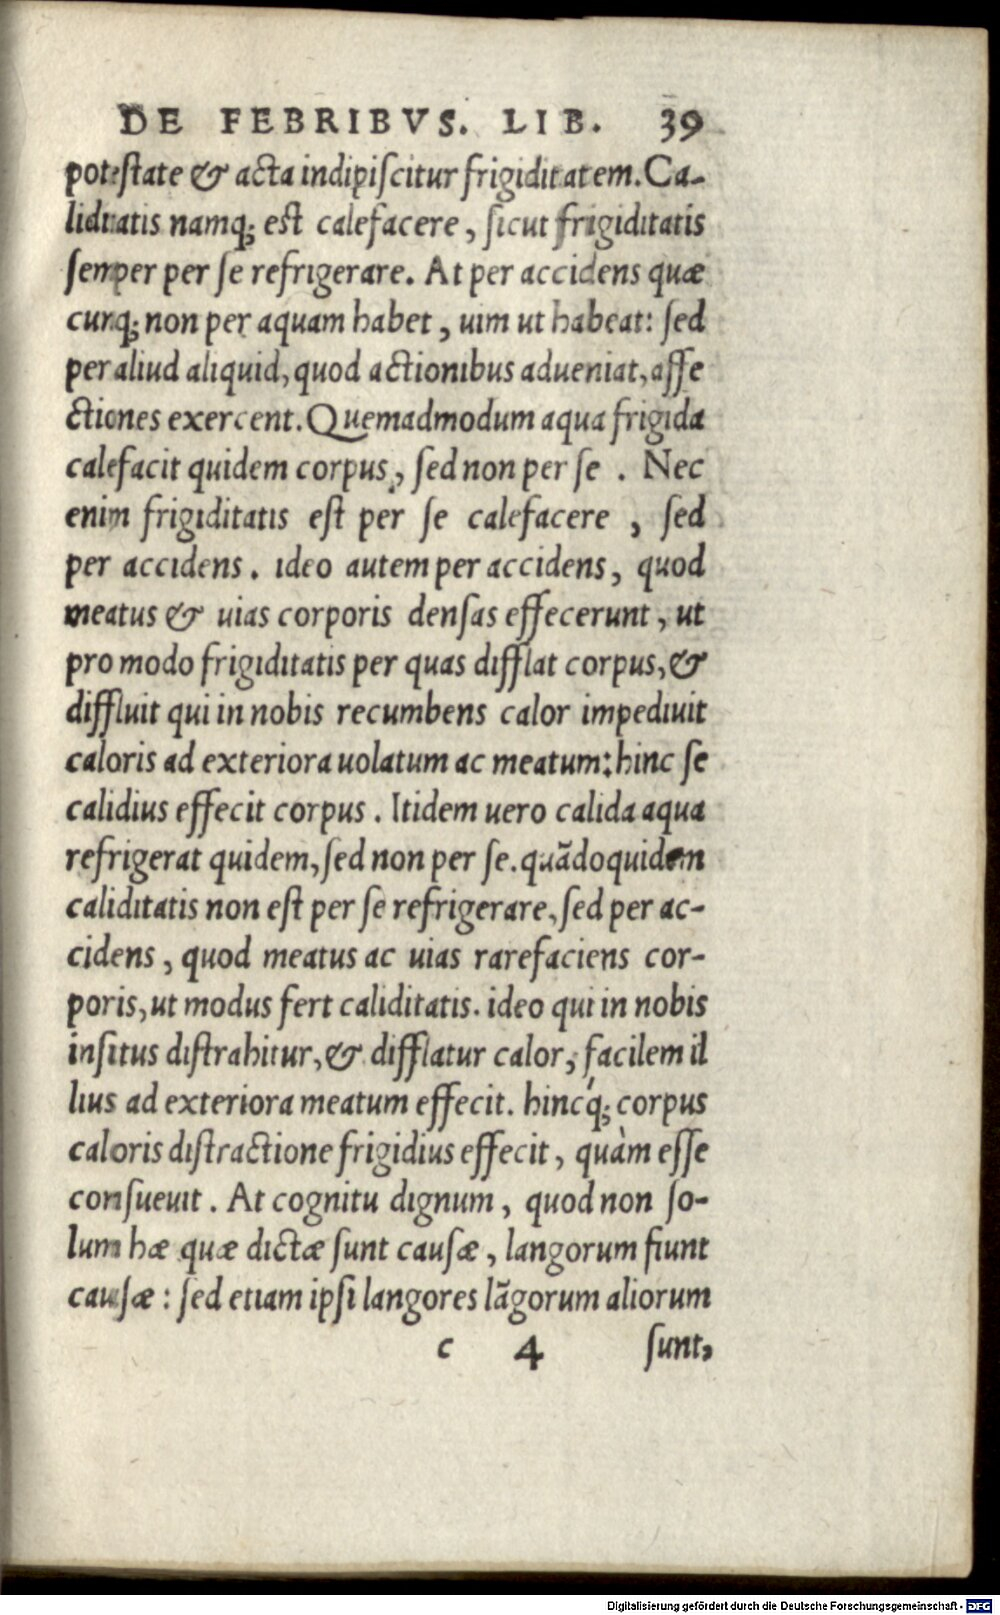 DE FEBRIBVS. LIB. 39
potestate & acta indipiscitur frigiditatem. Ca-
liditatis namq; est calefacere, sicut frigiditatis
semper per se refrigerare. At per accidens quæ
cunq; non per aquam habet, uim ut habeat: sed
per aliud aliquid, quod actionibus adueniat, affe
ctiones exercent. Quemadmodum aqua frigida
calefacit quidem corpus, sed non per se. Nec
enim frigiditatis est per se calefacere, sed
per accidens. ideo autem per accidens, quod
meatus & uias corporis densas effecerunt, ut
pro modo frigiditatis per quas difflat corpus, &
diffluit qui in nobis recumbens calor impediuit
caloris ad exteriora uolatum ac meatum: hinc se
calidius effecit corpus. Itidem uero calida aqua
refrigerat quidem, sed non per se. quãdoquidem
caliditatis non est per se refrigerare, sed per ac-
cidens, quod meatus ac uias rarefaciens cor-
poris, ut modus fert caliditatis. ideo qui in nobis
insitus distrahitur, & difflatur calor, facilem il
lius ad exteriora meatum effecit. hincq́; corpus
caloris distractione frigidius effecit, quàm esse
consueuit. At cognitu dignum, quod non so-
lum hæ quæ dictæ sunt causæ, langorum fiunt
causæ: sed etiam ipsi langores lãgorum aliorum
c 4 sunt,
Digitalisierung gefördert durch die Deutsche Forschungsgemeinschaft - DFG